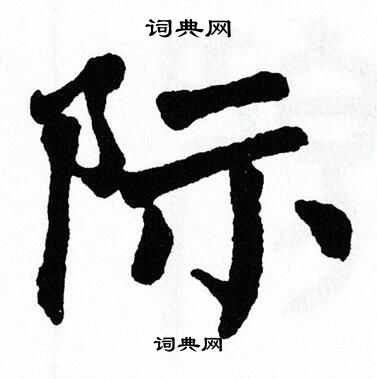 词典网
际
词典网